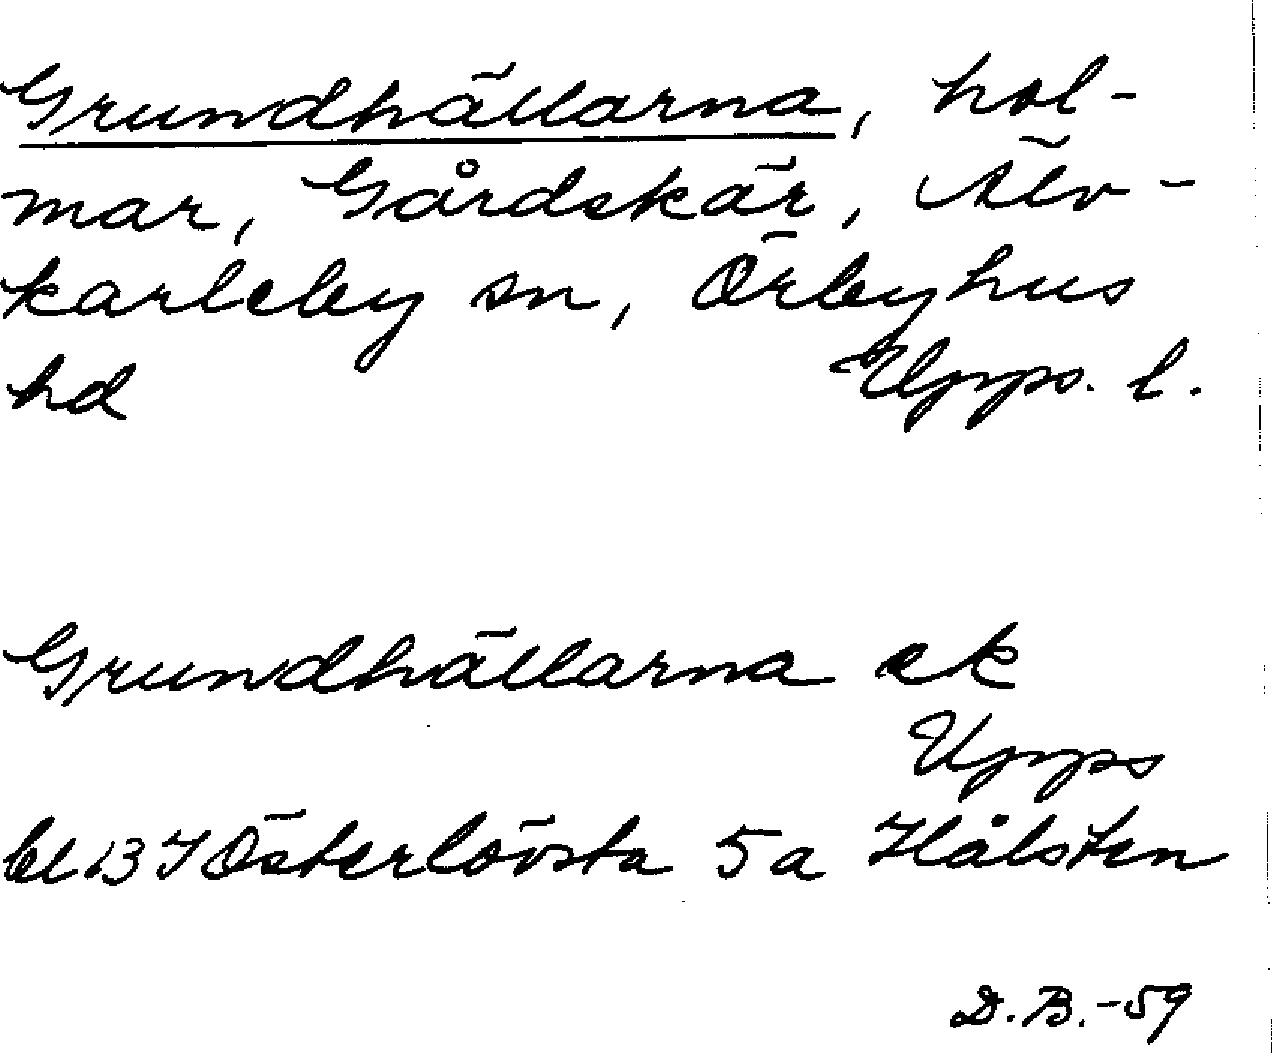 Grundhällarna, hol-
mar, Gårdskär, Älv-
karleby sn, Örbyhus
hd Upps. l.
Grundhällarna ek
Upps
bl 13 I Österlövsta 5a Hålsten
D.B.-59